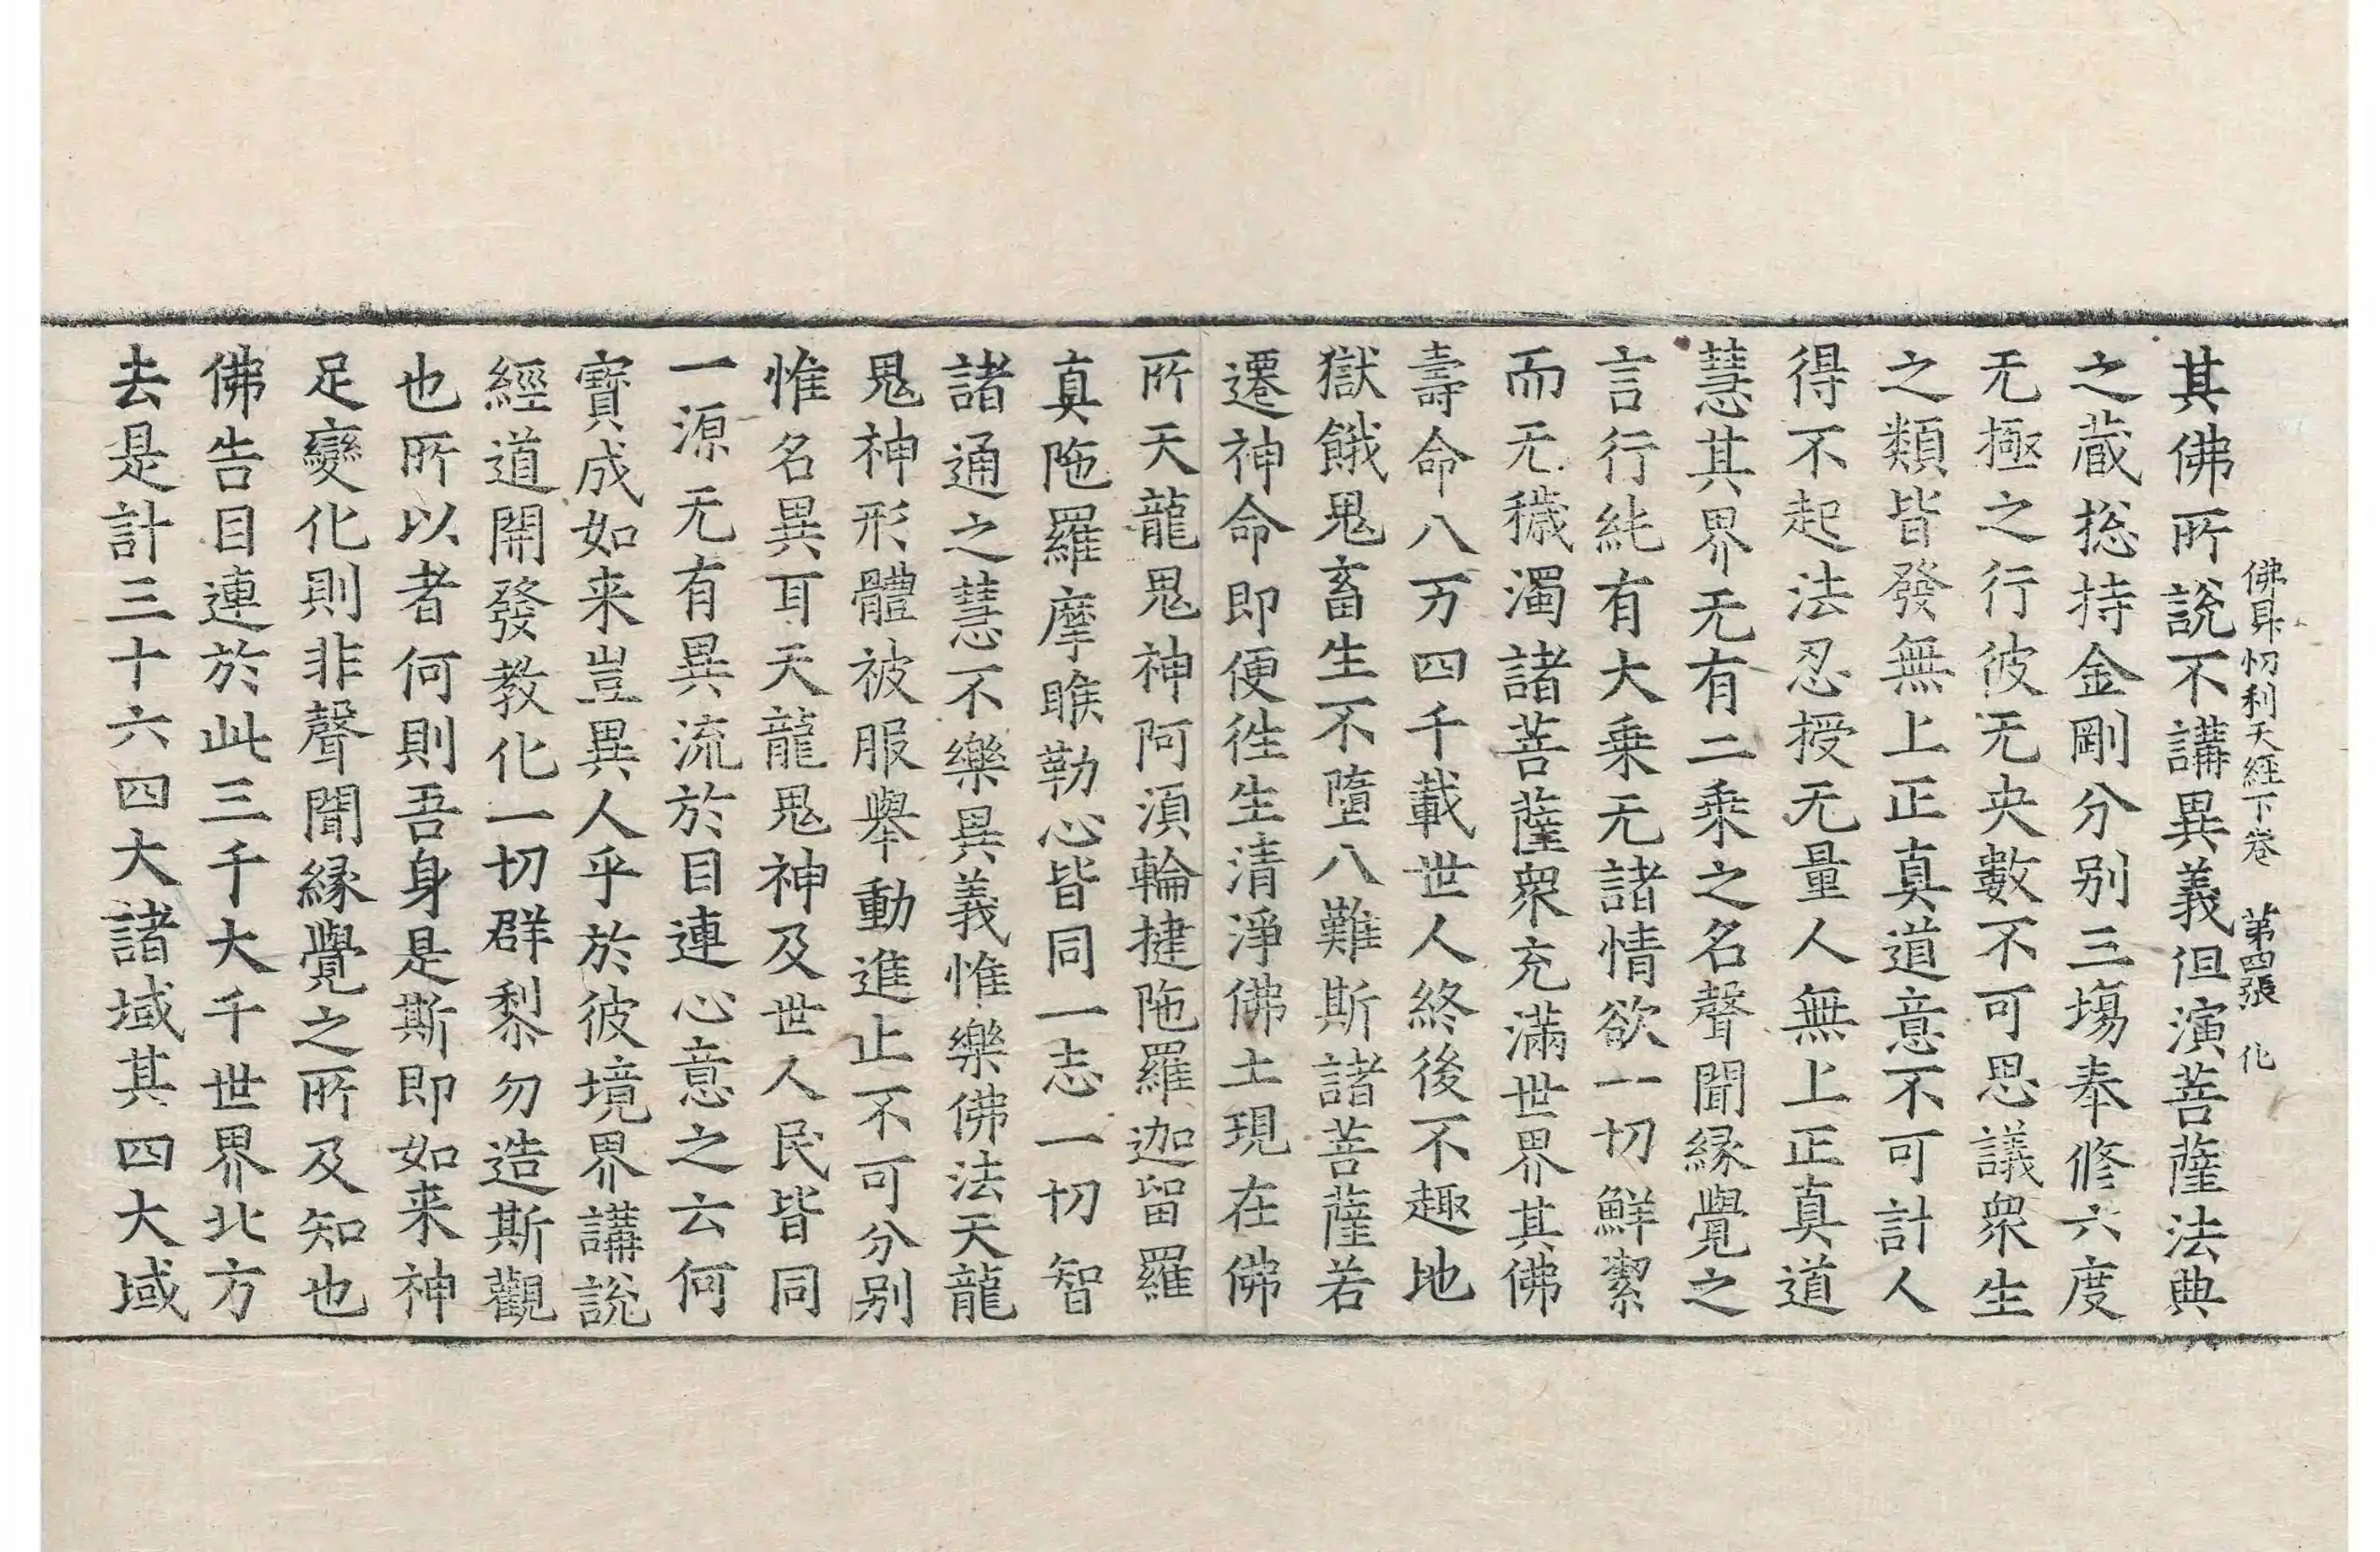 佛昇忉利天經下卷　第四張　化
其佛所說不講異義但演菩薩法典
之蔵捴持金剛分別三塲奉修六度
无極之行彼无央數不可思議衆生
之類皆發無上正真道意不可計人
得不起法忍授无量人無上正真道
慧其界无有二乘之名聲聞緣覺之
言行純有大乘无諸情欲一切鮮潔
而无穢濁諸菩薩衆充滿世界其佛
壽命八万四千載世人終後不趣地
獄餓鬼畜生不墮八難斯諸菩薩若
遷神命即便徃生清淨佛土現在佛
所天龍鬼神阿湏輪揵陁羅迦留羅
真陁羅摩睺勒心皆同一志一切智
諸通之慧不樂異義惟樂佛法天龍
鬼神形體被服舉動進止不可分別
惟名異耳天龍鬼神及世人民皆同
一源无有異流於目連心意之云何
寶成如来豈異人乎於彼境界講說
經道開發教化一切群黎勿造斯觀
也所以者何則吾身是斯即如来神
足變化則非聲聞緣覺之所及知也
佛告目連於此三千大千世界北方
去是計三十六四大諸域其四大域